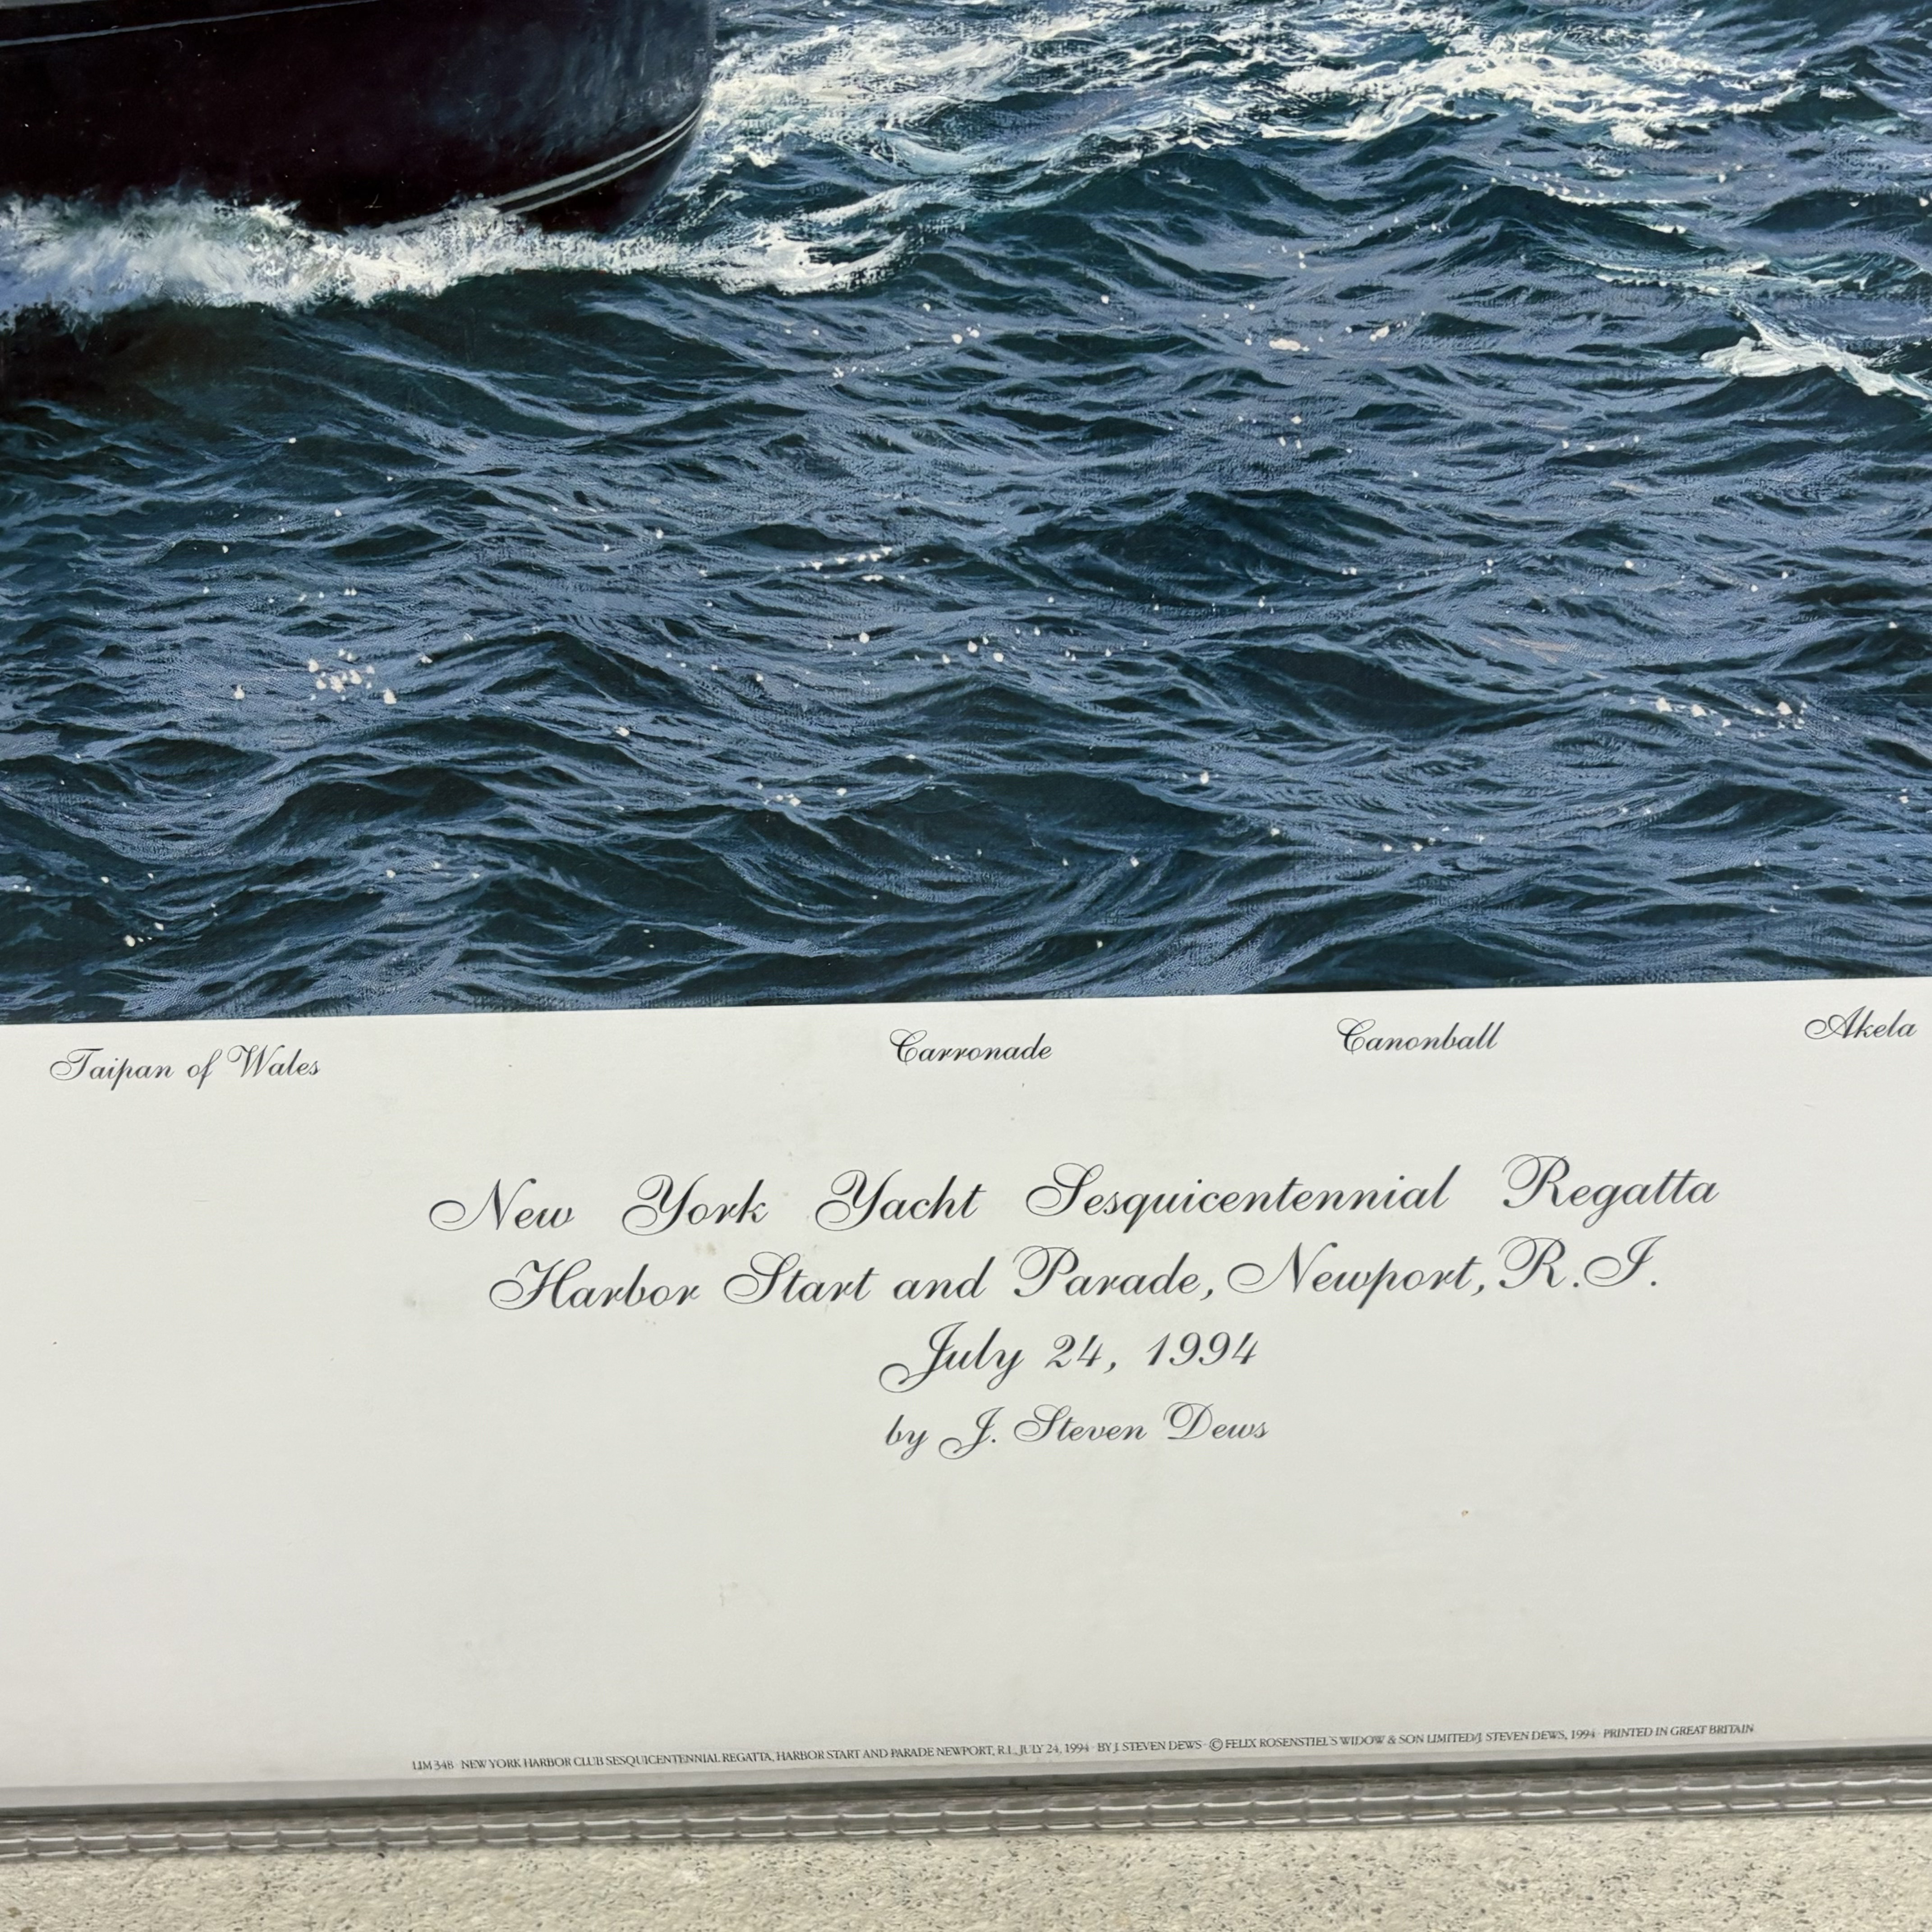 Taipan of Wales Carronade Canonball Akela
New York Yacht Sesquicentennial Regatta
Harbor Start and Parade, Newport, R.I.
July 24, 1994
by J. Steven Dews
LIM 348 · NEW YORK HARBOR CLUB SESQUICENTENNIAL REGATTA, HARBOR START AND PARADE NEWPORT, R.I., JULY 24, 1994 · BY J. STEVEN DEWS · © FELIX ROSENSTIEL'S WIDOW & SON LIMITED/J. STEVEN DEWS, 1994 · PRINTED IN GREAT BRITAIN